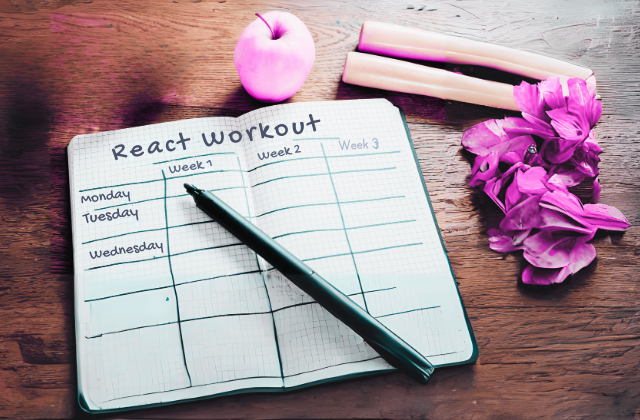 React Workout
Week 1 Week 2 Week 3
Monday
Tuesday
Wednesday